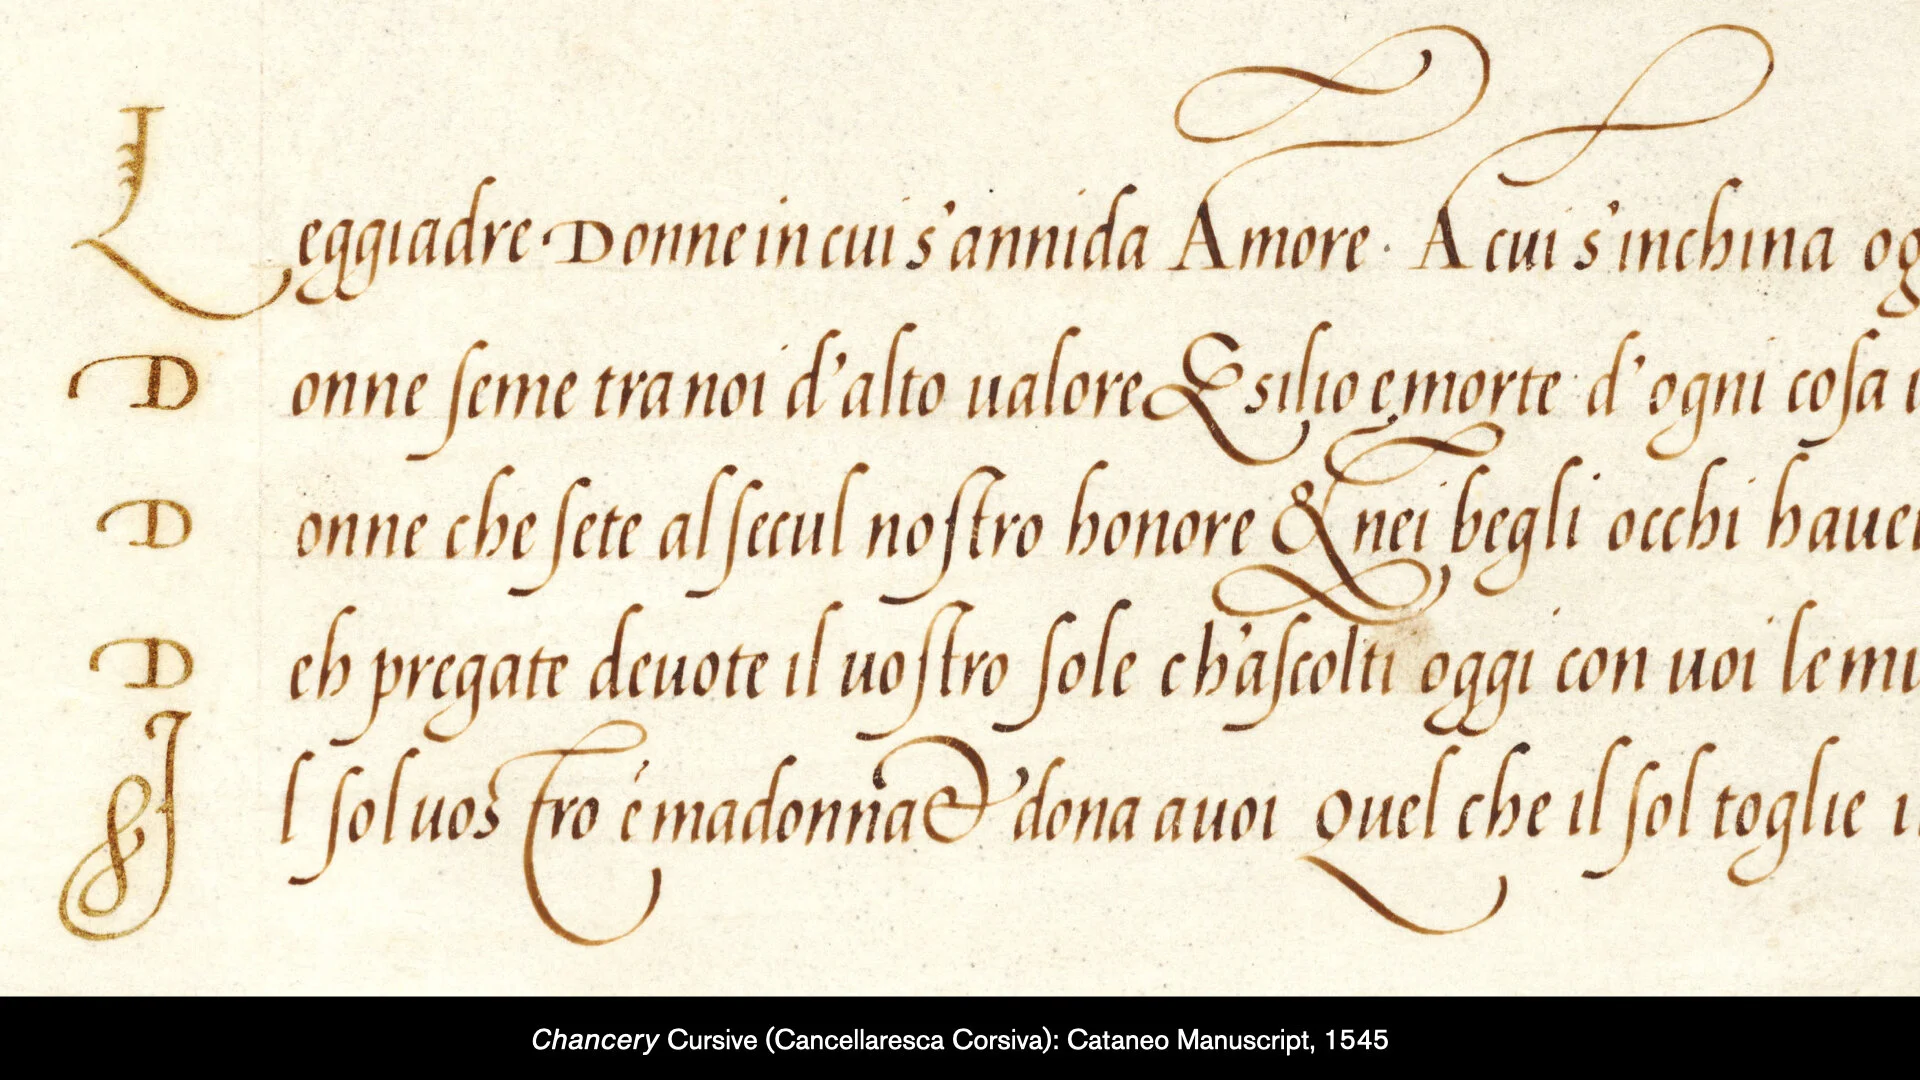 Leggiadre · Donne in cui s'annida Amore · A cui s'inchina og
Donne seme tra noi d'alto ualore Esilio e morte d'ogni cosa
Donne che sete al secul nostro honore & nei begli occhi hauer
Deh pregate deuote il uostro sole ch'ascolti oggi con uoi le
Il sol uostro é madonna & dona a uoi Quel che il sol toglie
Chancery Cursive (Cancellaresca Corsiva): Cataneo Manuscript, 1545